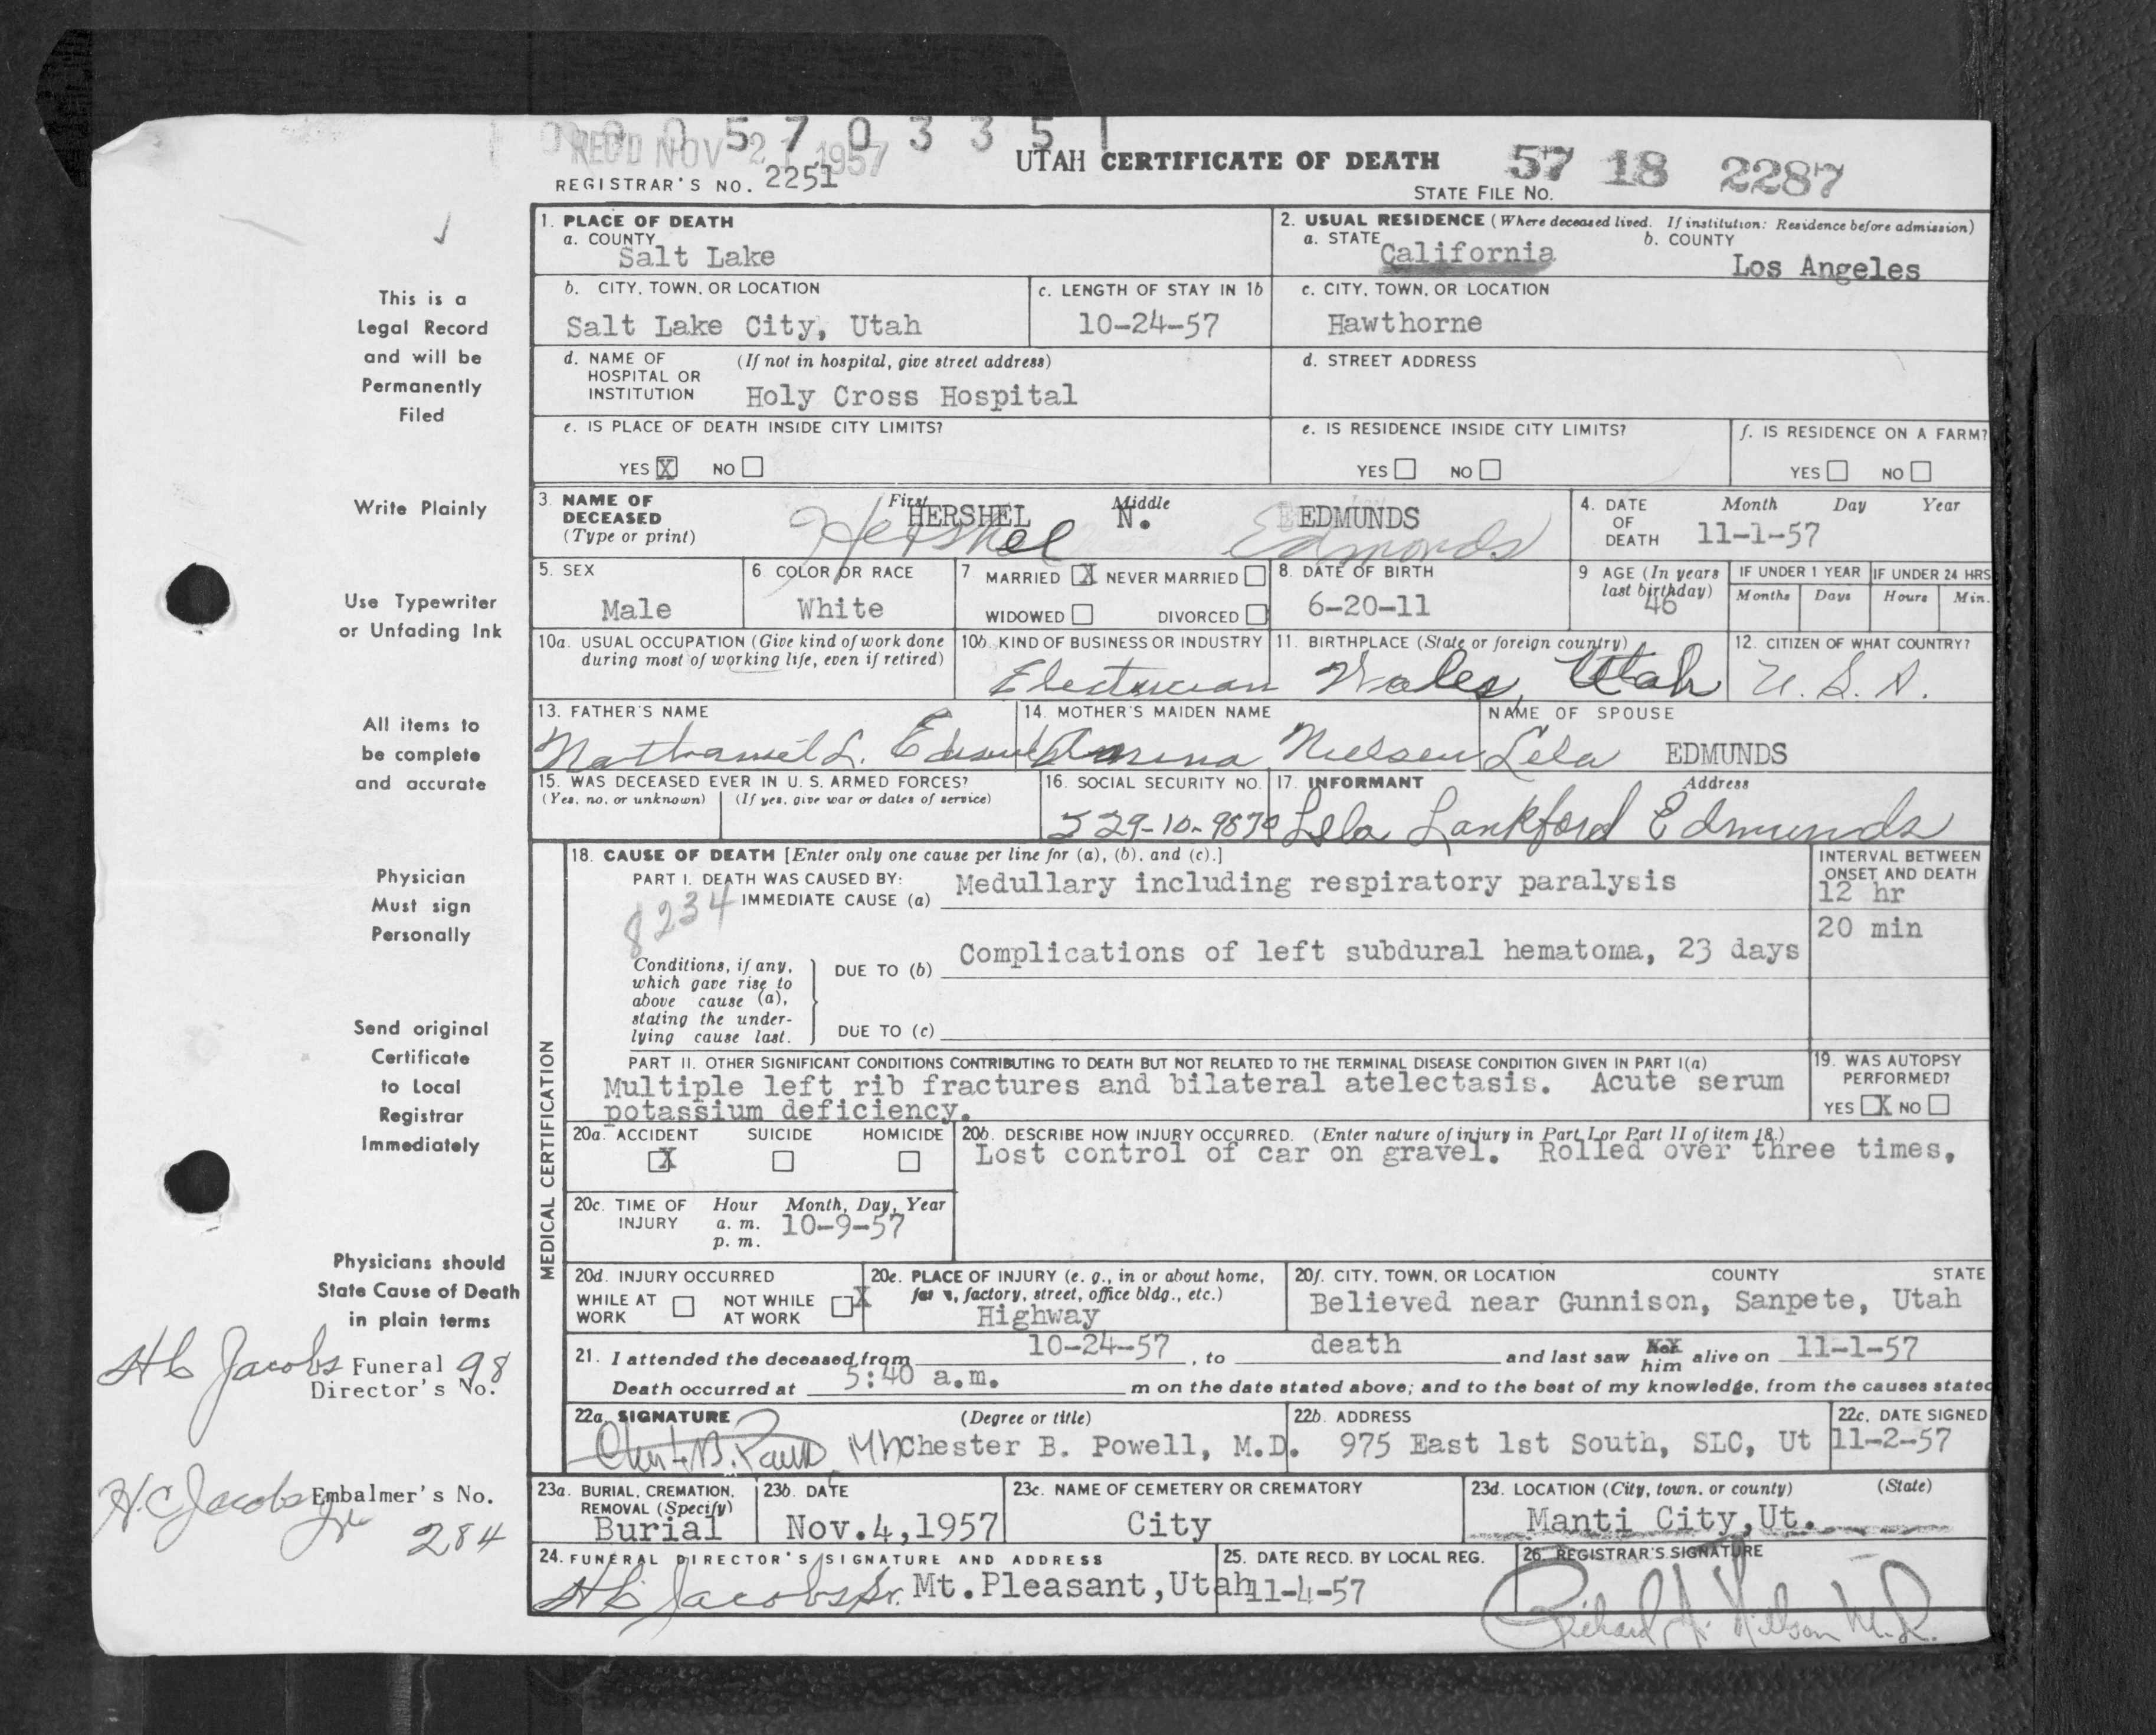 0 0 0 5 7 0 3 3 5 1
REC'D NOV 21 1957
REGISTRAR'S NO. 2251
UTAH CERTIFICATE OF DEATH
57 18 2287
STATE FILE NO.
This is a
Legal Record
and will be
Permanently
Filed
Write Plainly
Use Typewriter
or Unfading Ink
All items to
be complete
and accurate
Physician
Must sign
Personally
Send original
Certificate
to Local
Registrar
Immediately
Physicians should
State Cause of Death
in plain terms
HC Jacobs Funeral 98
Director's No.
H.C Jacobs Jr Embalmer's No.
284
1. PLACE OF DEATH
a. COUNTY
Salt Lake
2. USUAL RESIDENCE (Where deceased lived. If institution: Residence before admission)
a. STATE California
b. COUNTY Los Angeles
b. CITY, TOWN, OR LOCATION
Salt Lake City, Utah
c. LENGTH OF STAY IN 1b
10-24-57
c. CITY, TOWN, OR LOCATION
Hawthorne
d. NAME OF HOSPITAL OR INSTITUTION (If not in hospital, give street address)
Holy Cross Hospital
d. STREET ADDRESS
e. IS PLACE OF DEATH INSIDE CITY LIMITS?
YES X NO
e. IS RESIDENCE INSIDE CITY LIMITS?
YES NO
f. IS RESIDENCE ON A FARM?
YES NO
3. NAME OF DECEASED (Type or print)
First Middle
HERSHEL N. EDMUNDS
Hershel Edmonds
4. DATE OF DEATH Month Day Year
11-1-57
5. SEX
Male
6. COLOR OR RACE
White
7 MARRIED X NEVER MARRIED
WIDOWED DIVORCED
8. DATE OF BIRTH
6-20-11
9 AGE (In years last birthday)
46
IF UNDER 1 YEAR IF UNDER 24 HRS
Months Days Hours Min.
10a. USUAL OCCUPATION (Give kind of work done during most of working life, even if retired)
10b. KIND OF BUSINESS OR INDUSTRY
Electrician
11. BIRTHPLACE (State or foreign country)
Wales, Utah
12. CITIZEN OF WHAT COUNTRY?
U. S. A.
13. FATHER'S NAME
Nathaniel L.
14. MOTHER'S MAIDEN NAME
Nielsen
NAME OF SPOUSE
Lela EDMUNDS
15. WAS DECEASED EVER IN U. S. ARMED FORCES?
(Yes, no, or unknown) (If yes, give war or dates of service)
16. SOCIAL SECURITY NO.
529-10-9870
17. INFORMANT Address
Lela Lankford Edmunds
MEDICAL CERTIFICATION
18. CAUSE OF DEATH [Enter only one cause per line for (a), (b), and (c).]
PART I. DEATH WAS CAUSED BY:
8234
IMMEDIATE CAUSE (a) Medullary including respiratory paralysis
INTERVAL BETWEEN ONSET AND DEATH
12 hr
20 min
Conditions, if any, which gave rise to above cause (a), stating the underlying cause last.
DUE TO (b) Complications of left subdural hematoma, 23 days
DUE TO (c)
PART II. OTHER SIGNIFICANT CONDITIONS CONTRIBUTING TO DEATH BUT NOT RELATED TO THE TERMINAL DISEASE CONDITION GIVEN IN PART I(a)
Multiple left rib fractures and bilateral atelectasis. Acute serum
potassium deficiency.
19. WAS AUTOPSY PERFORMED?
YES X NO
20a. ACCIDENT SUICIDE HOMICIDE
X
20b. DESCRIBE HOW INJURY OCCURRED. (Enter nature of injury in Part I or Part II of item 18.)
Lost control of car on gravel. Rolled over three times.
20c. TIME OF INJURY Hour Month, Day, Year
a. m.
p. m.
10-9-57
20d. INJURY OCCURRED
WHILE AT WORK NOT WHILE AT WORK X
20e. PLACE OF INJURY (e. g., in or about home, farm, factory, street, office bldg., etc.)
Highway
20f. CITY, TOWN, OR LOCATION COUNTY STATE
Believed near Gunnison, Sanpete, Utah
21. I attended the deceased from 10-24-57, to death and last saw her him alive on 11-1-57
Death occurred at 5:40 a.m. m on the date stated above; and to the best of my knowledge, from the causes stated
22a. SIGNATURE (Degree or title)
Chester B. Powell, M.D.
22b. ADDRESS
975 East 1st South, SLC, Ut
22c. DATE SIGNED
11-2-57
23a. BURIAL, CREMATION, REMOVAL (Specify)
Burial
23b. DATE
Nov. 4, 1957
23c. NAME OF CEMETERY OR CREMATORY
City
23d. LOCATION (City, town, or county) (State)
Manti City, Ut.
24. FUNERAL DIRECTOR'S SIGNATURE AND ADDRESS
HC Jacobs Sr. Mt. Pleasant, Utah
25. DATE RECD. BY LOCAL REG.
11-4-57
26. REGISTRAR'S SIGNATURE
Richard A. Nelson M.D.